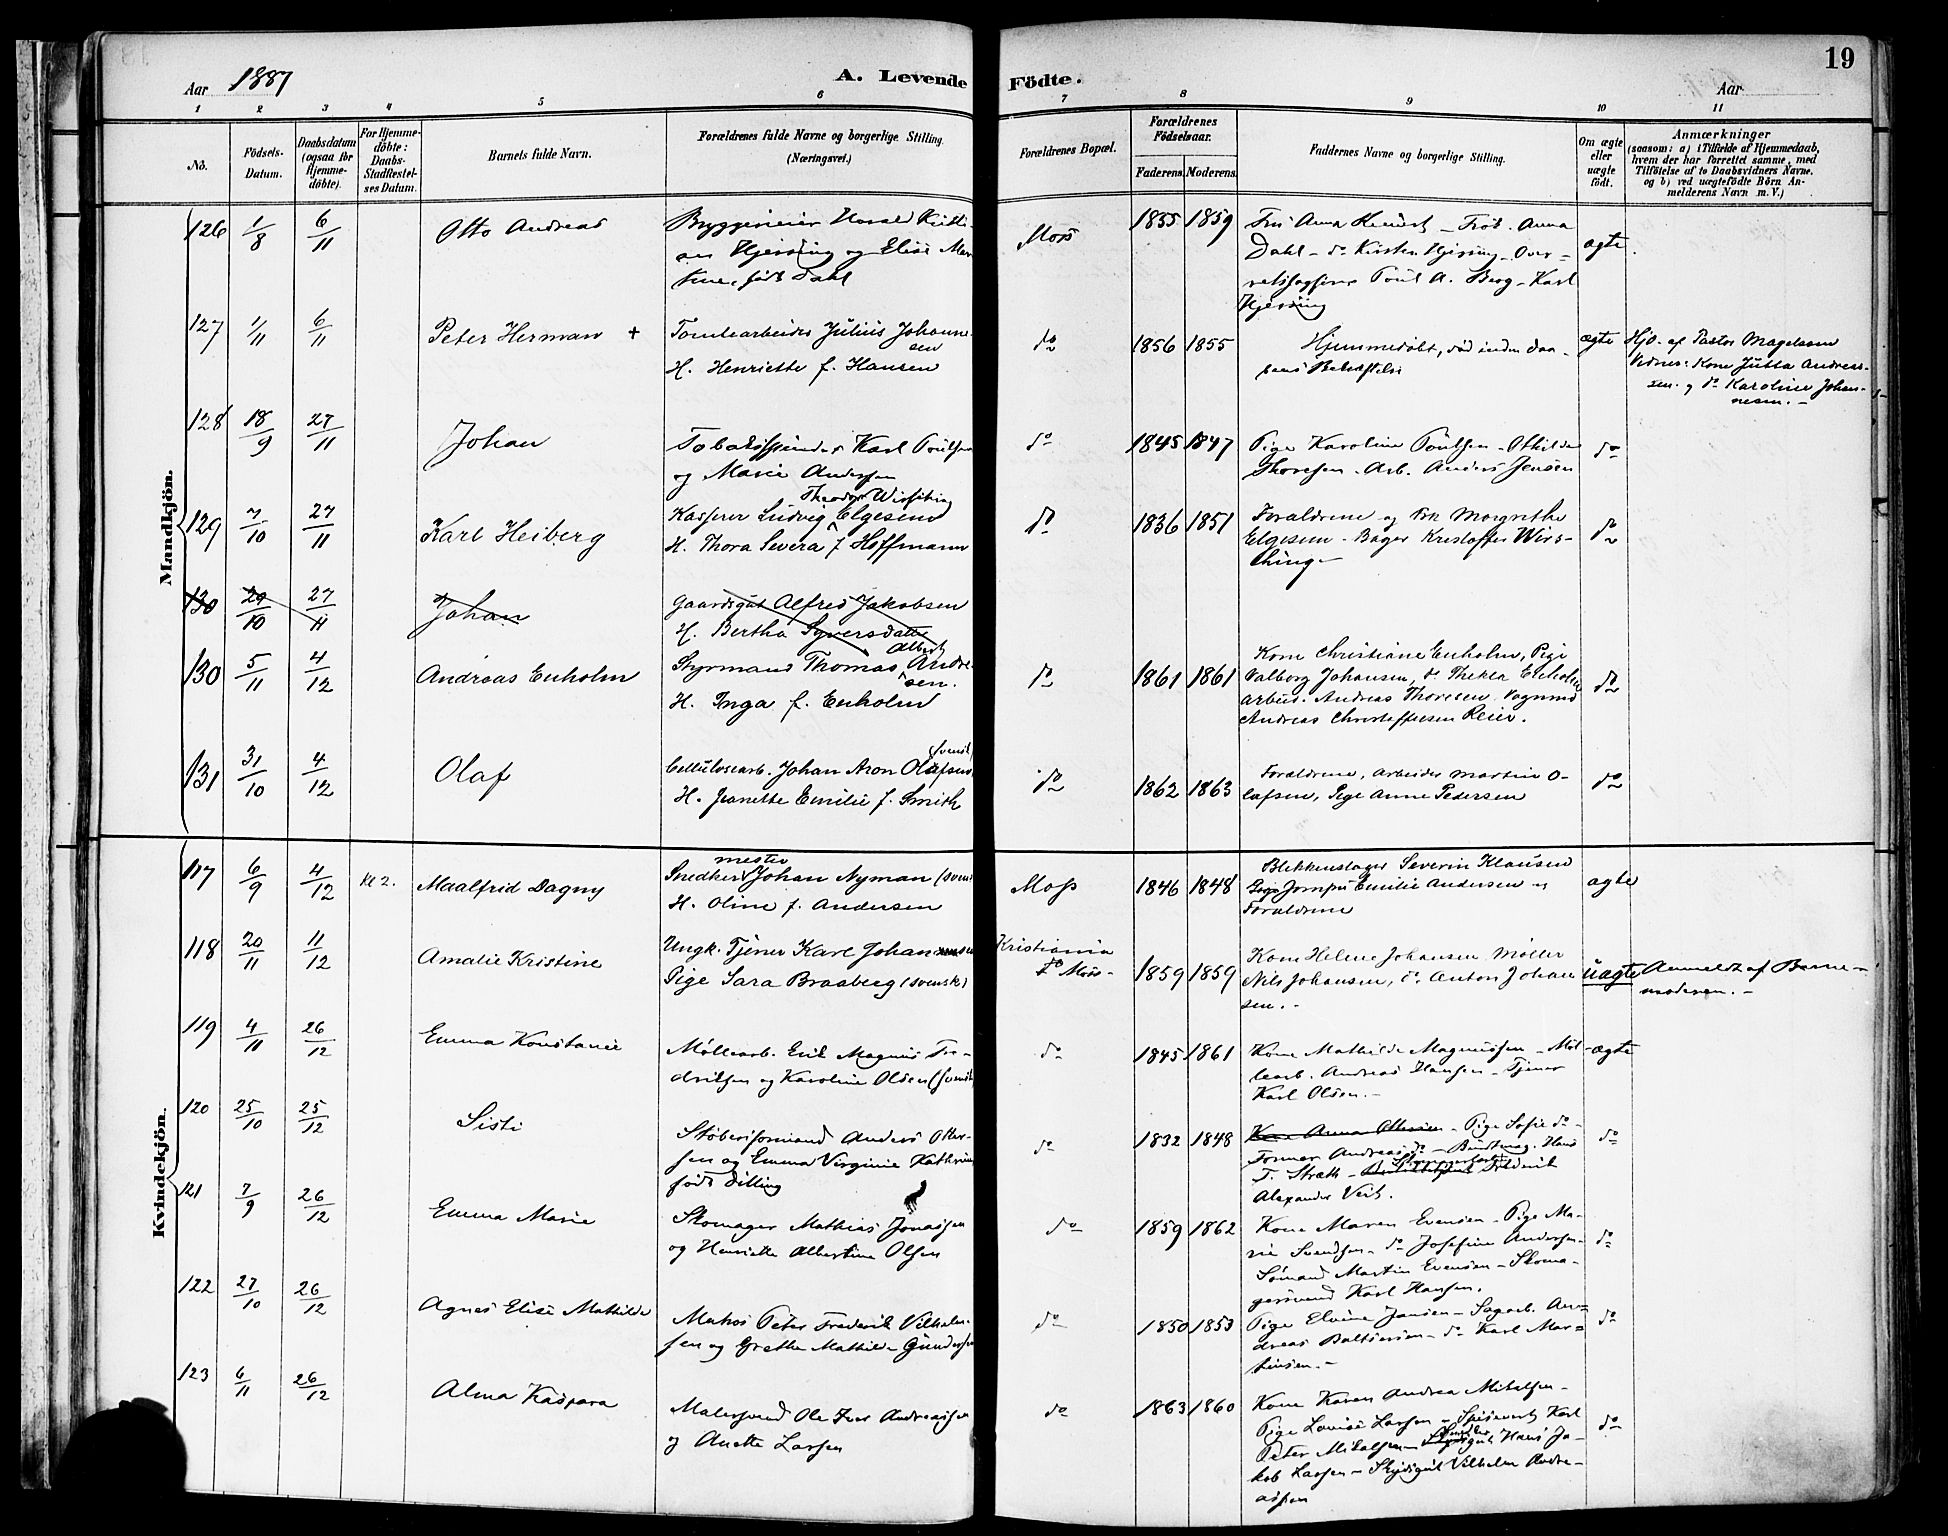 19
Aar 1887
A. Levende Födte.
Aar
1 2 3 4 5 6 7 8 9 10 11
No.
Födsels-
Datum.
Daabsdatum
(ogsaa for
Hjemme-
döbte).
For Hjemme-
döbte:
Daabs-
Stadfæstel-
ses Datum.
Barnets fulde Navn.
Forældrenes fulde Navne og borgerlige Stilling.
(Næringsvei.)
Forældrenes Bopæl.
Forældrenes
Födselsaar.
Faderens. Moderens.
Faddernes Navne og borgerlige Stilling.
Om ægte
eller
uægte
födt.
Anmærkninger
(saasom: a) i Tilfælde af Hjemmedaab,
hvem der har forrettet samme, med
Tilföielse af to Daabsvidners Navne,
og b) ved uægtefödte Börn An-
melderens Navn m. V.)
Mandkjön.
126 1/8 6/11 Otto Andreas
Bryggerieier Harald Kristi-
an Hjersing og Elise Mar-
tine, født Dahl
Moss 1855 1859
Fru Anna - Frøk. Anna
Dahl - do Kirsten Hjersing - Over-
retssagfører Poul A. Berg - Karl
Hjersing
ægte
127 1/11 6/11 Peter Herman +
Tomtearbeider Julius Johanne-
sen
H. Henriette f. Hansen
do 1856 1855
Hjemmedøbt, død inden Daa-
bens Bekræftelse
ægte
Hjd. af Pastor Magelssen
Vidner: Kone Jutta Andreas-
sen og do Karoline Johan-
nesen. -
128 18/9 27/11 Johan
Tobaksspinder Karl Poulsen
og Marie Andersen
do 1845 1847
Pige Karoline Poulsen - Othilde
Thoresen - Arb. Anders Jensen
do
129 7/10 27/11 Karl Heiberg
Theodor Wirsching
Kasserer Ludvig Elgesem
H. Thora Severa f Hoffmann
do 1836 1851
Forældrene og Frk Margrethe
Elgesem - Bager Kristoffer Wirs-
ching -
do
130 29/10 27/11 Johan
Gaardsgut Alfred Jakobsen
H. Bertha Syversdatter
130 5/11 4/12 Andreas Enholm
Albert
Styrmand Thomas Andre-
sen.
H. Inga f. Enholm
do 1861 1861
Kone Christiane Enholm, Pige
Valborg Johansen, do Thekla Enholm
Arbeid. Andreas Thoresen Vognmd
Andreas Christoffersen Reier.
do
131 31/10 4/12 Olaf
(svensk)
Cellulosearb. Johan Aron Olafsen
H. Jeanette Emilie f. Smith
do 1862 1863
Forældrene, Arbeider Martin O-
lafsen, Pige Anne Pedersen
do
Kvindekjön.
117 6/9 4/12 Kl 2. Maalfrid Dagny
mester
Snedker Johan Nyman (svensk
H. Oline f. Andersen
Moss 1846 1848
Blikkenslager Severin Klausen
Jomfru Emilie Andersen og
Forældrene
ægte
118 20/11 11/12 Amalie Kristine
Ungk. Tjener Karl Johansen
Pige Sara Braaberg (svensk)
Kristiania
do Moss - 1859 1859
Kone Helene Johansen Møller
Nils Johansen, do Anton Johan
sen. -
uægte
Anmeldt af Barne-
moderen. -
119 4/11 26/12 Emma Konstance
Møllearb. Erik Magnus Fre-
driksen og Karoline Olsen (svensk
do 1845 1861
Kone Mathilde Magnussen - Møl-
learb. Andreas Hansen - Tjener
Karl Olsen. -
ægte
120 25/10 25/12 Sisti
Støberiformand Anders Otter-
sen og Emma Virginie Kathrine
født Dilling
do 1832 1848
Kone Anna Ottersen - Pige Sofie do -
Former Andreas do - Buntmag. Hans
T. Strøth - Frederik
Alexander Veit.
do
121 7/9 26/12 Emma Marie
Skomager Mathias Jonassen
og Henriette Albertine Olsen
do 1859 1862
Kone Maren Evensen - Pige Ma-
rie Svendsen - do Josefine Andersen -
Sømand Martin Evensen - Skoma-
gersvend Karl Hansen.
do
122 27/10 26/12 Agnes Elise Mathilde
Matros Peter Frederik Vilhelm-
sen og Grethe Mathilde Gundersen
do 1850 1853
Pige Elvine Jansen - Sagarb. An-
dreas Baltsersen - do Karl Mar-
tinsen. -
do
123 6/11 26/12 Alma Kaspara
Malersvend Ole Iver Andreassen
og Anette Larsen
do 1863 1860
Kone Karen Andrea Mikelsen -
Pige Lovise Larsen - Spisevert Karl
Peter Mikalsen - gut Hans Ja-
kob Larsen - Skydsgut Vilhelm Andre-
assen
do